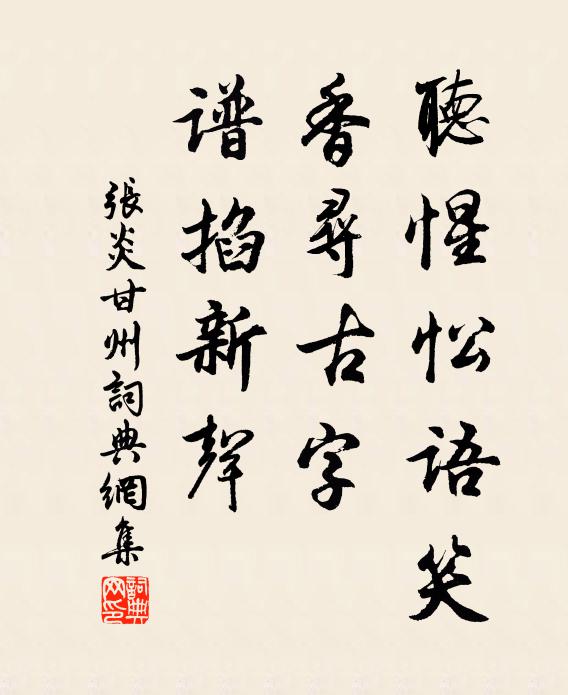 聽惺忪語笑
香尋古字
譜掐新聲
張炎甘州詞典網集
詞典網印